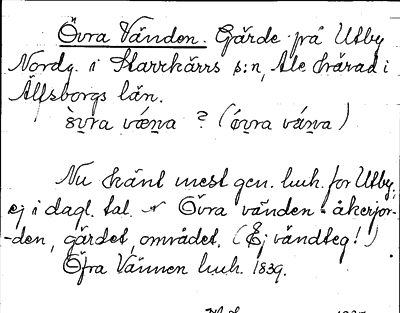 Övra Vänden. Gärde på Utby
Nordg. i Starrkärrs s:n, Ale härad i
Älfsborgs län.
ò̱vra væ̱ṇa ? (ó̱vra vá̱ṇa)
Nu känt mest gen. huh. for Utby,
ej i dagl. tal. Övra vänden = åkerjor-
-den, gärdet, området. (Ej vändteg!)
Öfra Vännen huh. 1839.